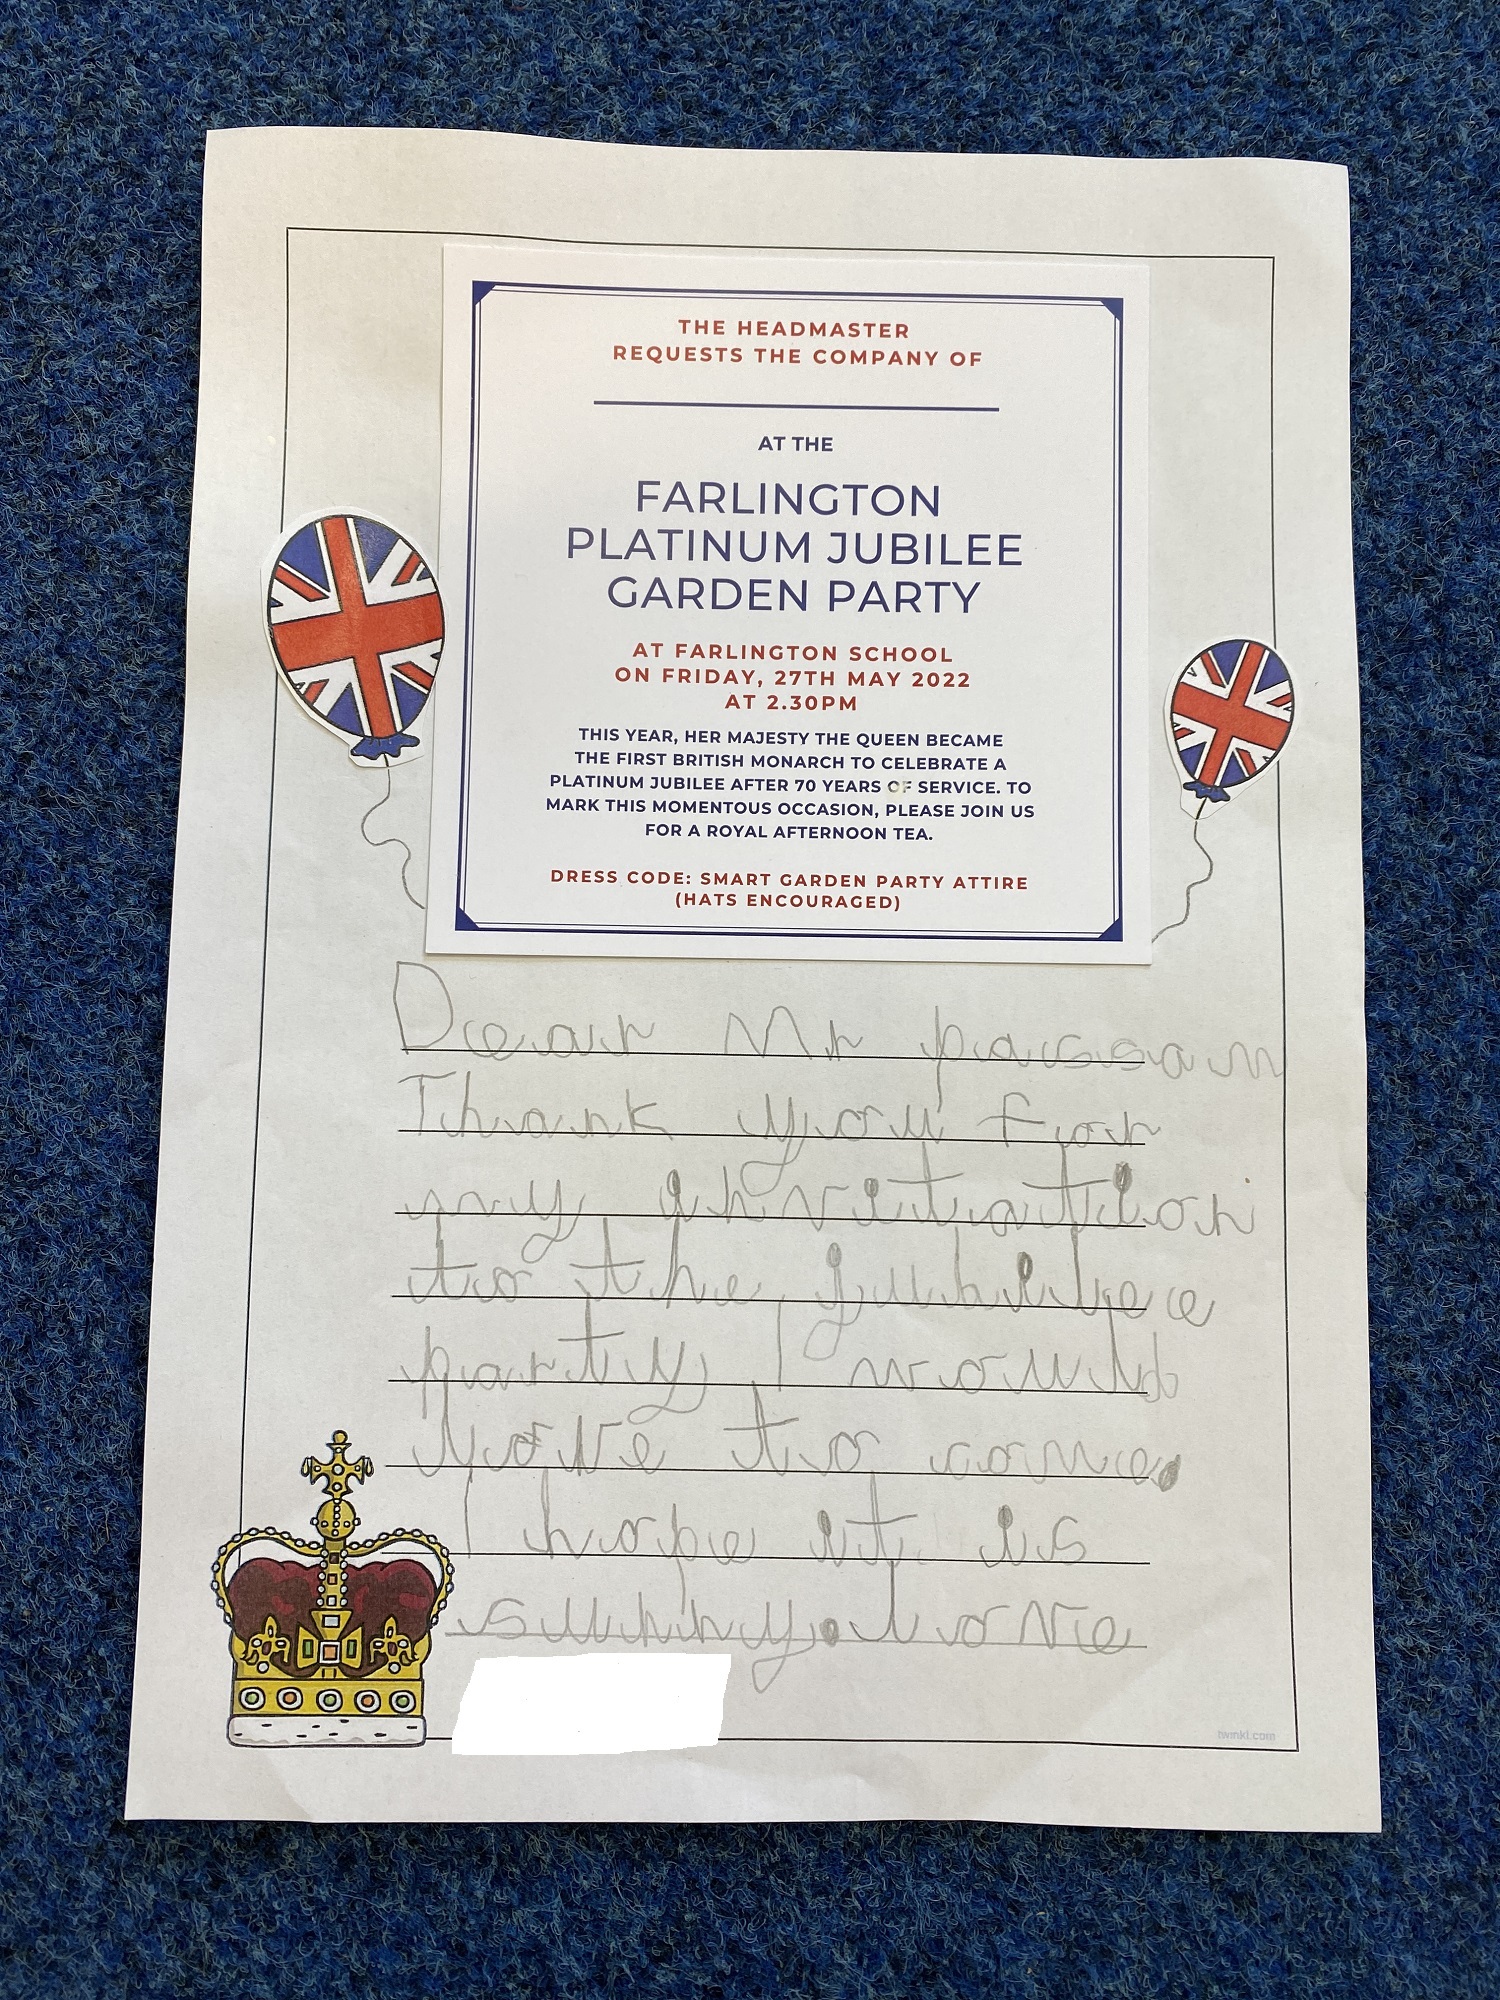 THE HEADMASTER
REQUESTS THE COMPANY OF
AT THE
FARLINGTON
PLATINUM JUBILEE
GARDEN PARTY
AT FARLINGTON SCHOOL
ON FRIDAY, 27TH MAY 2022
AT 2.30PM
THIS YEAR, HER MAJESTY THE QUEEN BECAME
THE FIRST BRITISH MONARCH TO CELEBRATE A
PLATINUM JUBILEE AFTER 70 YEARS OF SERVICE. TO
MARK THIS MOMENTOUS OCCASION, PLEASE JOIN US
FOR A ROYAL AFTERNOON TEA.
DRESS CODE: SMART GARDEN PARTY ATTIRE
(HATS ENCOURAGED)
Dear Mr passam
Thank you for
my invitation
to the jubilee
party I would
love to come.
I hope it is
sunny. love
twinkl.com